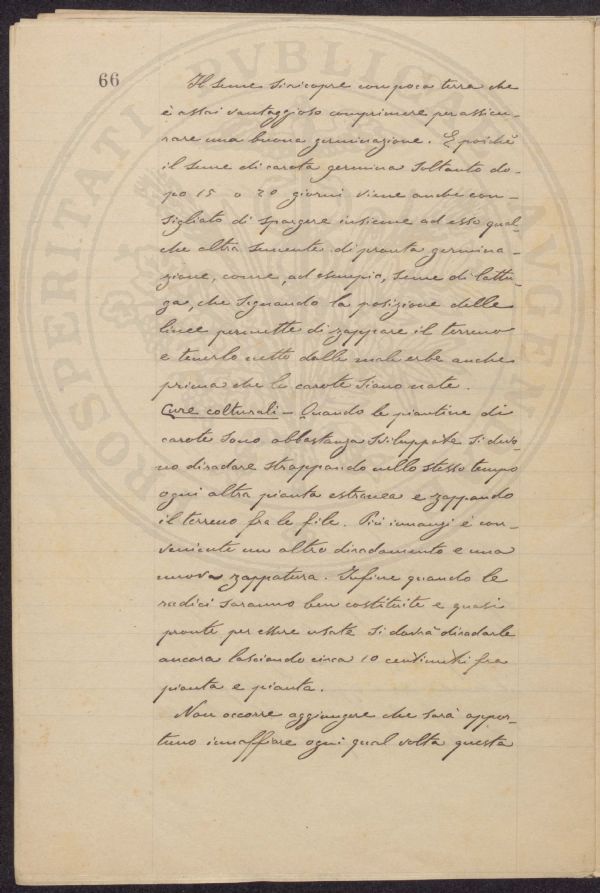 66
Il seme si ricopre con poca terra che
è assai vantaggioso comprimere per assicu-
rare una buona germinazione. E poichè
il seme di carota germina soltanto do-
po 15 o 20 giorni viene anche con-
sigliato di spargere insieme ad esso qual-
che altra semente di pronta germina-
zione, come, ad esempio, seme di lattu-
ga, che segnando la posizione delle
linee permette di zappare il terreno
e tenerlo netto dalle male erbe anche
prima che le carote siano nate.
Cure colturali - Quando le piantine di
carote sono abbastanza sviluppate si devo-
no diradare strappando nello stesso tempo
ogni altra pianta estranea e zappando
il terreno fra le file. Più innanzi è con-
veniente un altro diradamento e una
nuova zappatura. Infine quando le
radici saranno ben costituite e quasi
pronte per essere usate si dovrà diradarle
ancora lasciando circa 10 centimetri fra
pianta e pianta.
Non occorre aggiungere che sarà oppor-
tuno innaffiare ogni qual volta questa
PROSPERITATI PVBLICAE AVGEN